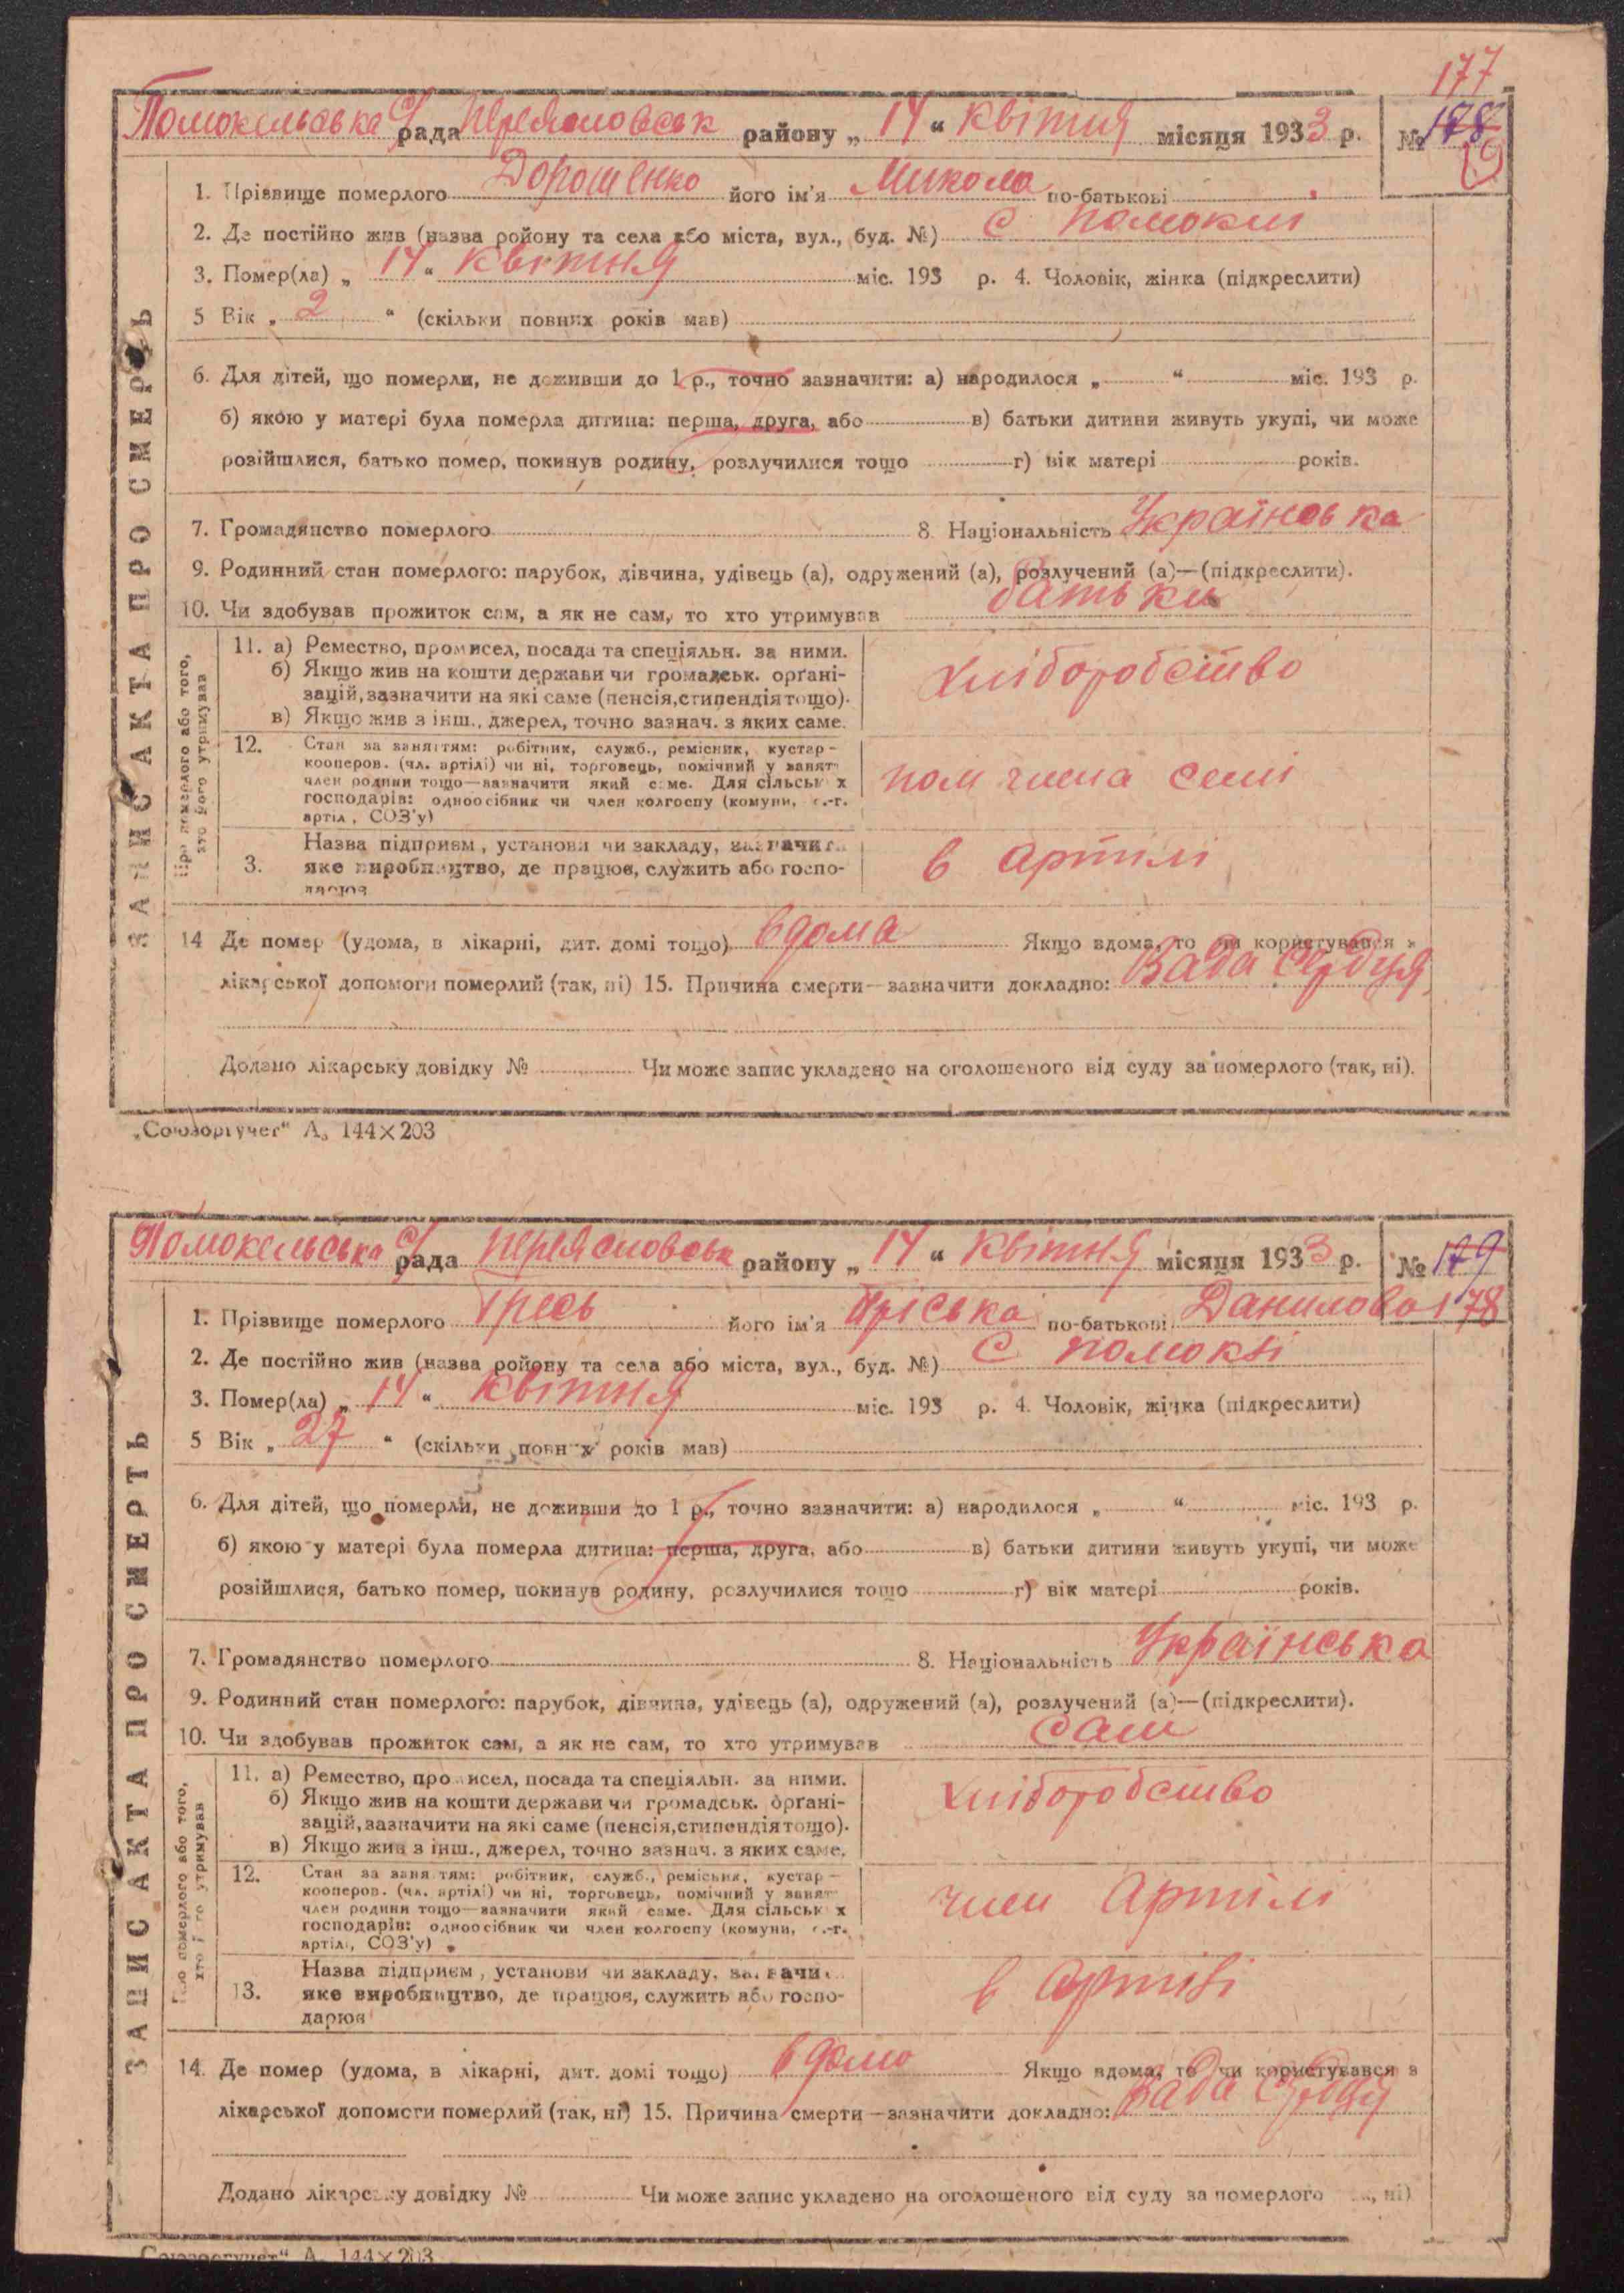 177
Помокельська с/рада Переясловськ району „ 14 “ Квітня місяця 1933 р. № 178
1. Прізвище померлого Дорошенко його ім'я Микола по-батькові
2. Де постійно жив (назва ройону та села або міста, вул., буд. №) с Помокли
3. Помер(ла) „ 14 “ Квітня міс. 193 р. 4. Чоловік, жінка (підкреслити)
5 Вік „ 2 “ (скільки повних років мав)
6. Для дітей, що померли, не доживши до 1 р., точно зазначити: а) народилося „ “ міс. 193 р.
б) якою у матері була померла дитина: перша, друга, або в) батьки дитини живуть укупі, чи може
розійшлися, батько помер, покинув родину, розлучилися тощо г) вік матері років.
7. Громадянство померлого 8. Національність Українська
9. Родинний стан померлого: парубок, дівчина, удівець (а), одружений (а), розлучений (а)—(підкреслити).
10. Чи здобував прожиток сам, а як не сам, то хто утримував батьки
ЗАПИС АКТА ПРО СМЕРТЬ
Про померлого або того,
хто його утримував
11. а) Ремество, промисел, посада та спеціяльн. за ними.
б) Якщо жив на кошти держави чи громадськ. орґані-
зацій, зазначити на які саме (пенсія, стипендія тощо).
в) Якщо жив з інш., джерел, точно зазнач. з яких саме.
хліборобство
12. Стан за заняттям: робітник, служб., ремісник, кустар—
кооперов. (чл. артілі) чи ні, торговець, помічний у занят
член родини тощо—зазначити який саме. Для сільськ х
господарів: одноосібник чи член колгоспу (комуни, с.-г.
артіл, СОЗ'у)
пом члена семі
3. Назва підприєм, установи чи закладу, зазначит
яке виробництво, де працює, служить або госпо-
дарює
в Артилі
14 Де помер (удома, в лікарні, дит. домі тощо) вдома Якщо вдома, то чи користувався з
лікарської допомоги померлий (так, ні) 15. Причина смерти—зазначити докладно: Вада Сердця
Додано лікарську довідку № Чи може запис укладено на оголошеного від суду за померлого (так, ні).
„Союзоргучет“ А₅ 144×203
Помокельська с/рада Переясловськ району „ 14 “ Квітня місяця 1933 р. № 179
1. Прізвище померлого Гресь його ім'я Пріська по-батькові Данилова 178
2. Де постійно жив (назва ройону та села або міста, вул., буд. №) с Помоклі
3. Помер(ла) „ 14 “ Квітня міс. 193 р. 4. Чоловік, жінка (підкреслити)
5 Вік „ 27 “ (скільки повних років мав)
6. Для дітей, що померли, не доживши до 1 р., точно зазначити: а) народилося „ “ міс. 193 р.
б) якою у матері була померла дитина: перша, друга, або в) батьки дитини живуть укупі, чи може
розійшлися, батько помер, покинув родину, розлучилися тощо г) вік матері років.
7. Громадянство померлого 8. Національність Українська
9. Родинний стан померлого: парубок, дівчина, удівець (а), одружений (а), розлучений (а)—(підкреслити).
10. Чи здобував прожиток сам, а як не сам, то хто утримував Сам
ЗАПИС АКТА ПРО СМЕРТЬ
Про померлого або того,
хто його утримував
11. а) Ремество, промисел, посада та спеціяльн. за ними.
б) Якщо жив на кошти держави чи громадськ. орґані-
зацій, зазначити на які саме (пенсія, стипендія тощо).
в) Якщо жив з інш., джерел, точно зазнач. з яких саме.
хліборобство
12. Стан за заняттям: робітник, служб., ремісник, кустар—
кооперов. (чл. артілі) чи ні, торговець, помічний у занят
член родини тощо—зазначити який саме. Для сільськ х
господарів: одноосібник чи член колгоспу (комуни, с.-г.
артіл, СОЗ'у)
член Артілі
13. Назва підприєм, установи чи закладу, зазначи
яке виробництво, де працює, служить або госпо-
дарює
в Артілі
14. Де помер (удома, в лікарні, дит. домі тощо) вдома Якщо вдома, то чи користувався з
лікарської допомоги померлий (так, ні) 15. Причина смерти—зазначити докладно: Вада Сердця
Додано лікарську довідку № Чи може запис укладено на оголошеного від суду за померлого ні)
„Союзоргучет“ А₅ 144×203